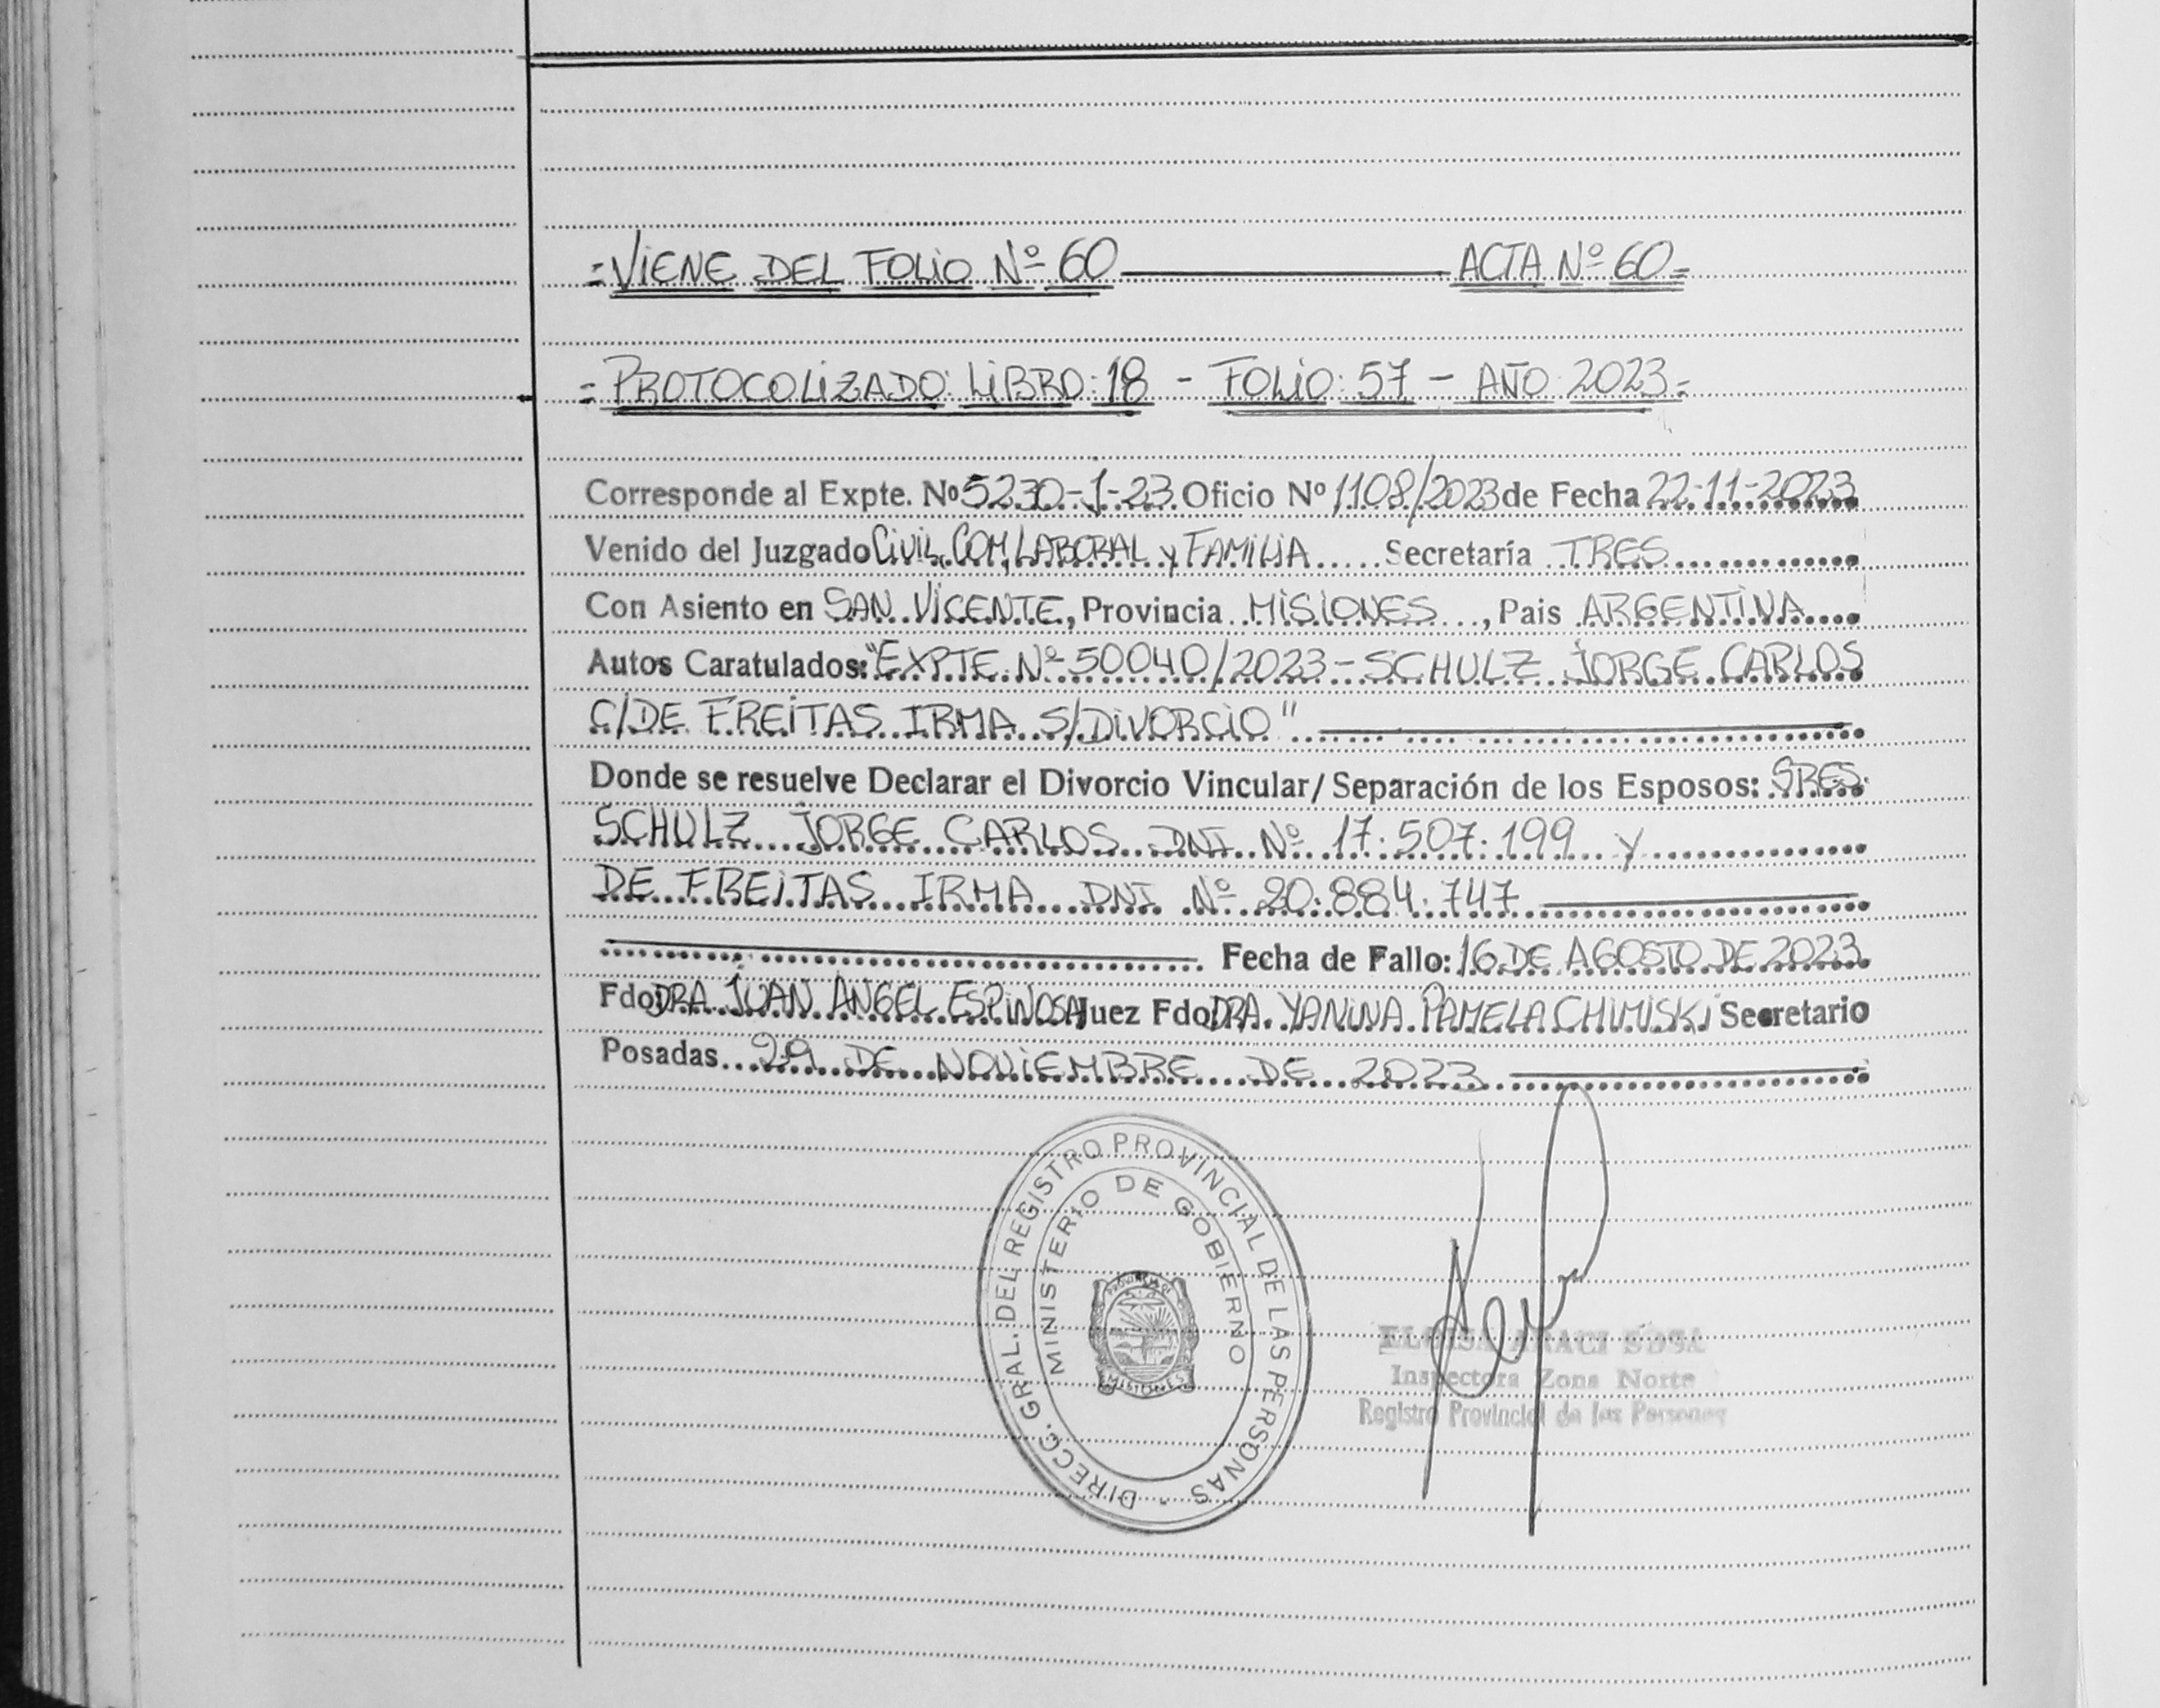 =VIENE DEL FOLIO Nº 60 ACTA Nº 60=
=PROTOCOLIZADO: LIBRO: 18 - FOLIO: 57 - AÑO 2023=
Corresponde al Expte. Nº 5230-1-23 Oficio Nº 1108/2023 de Fecha 22-11-2023
Venido del Juzgado CIVIL, COM, LABORAL Y FAMILIA Secretaría TRES
Con Asiento en SAN VICENTE, Provincia MISIONES, Pais ARGENTINA
Autos Caratulados: "EXPTE. Nº 50040/2023 - SCHULZ JORGE CARLOS
C/DE FREITAS IRMA S/DIVORCIO"
Donde se resuelve Declarar el Divorcio Vincular/ Separación de los Esposos: SRES.
SCHULZ JORGE CARLOS DNI Nº 17.507.199 Y
DE FREITAS IRMA DNI Nº 20.884.747
Fecha de Fallo: 16 DE AGOSTO DE 2023
Fdo DRA. JUAN ANGEL ESPINOSA Juez Fdo DRA. YANINA PAMELA CHIMISKI Secretario
Posadas 29 DE NOVIEMBRE DE 2023
DIRECC. GRAL. DEL REGISTRO PROVINCIAL DE LAS PERSONAS -
MINISTERIO DE GOBIERNO
PROVINCIA DE
MISIONES
ELOISA ARACI SOSA
Inspectora Zona Norte
Registro Provincial de las Personas